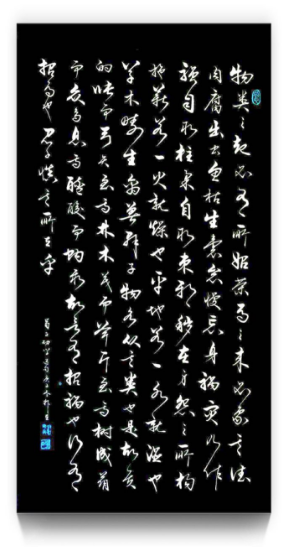 物類之起必有所始榮辱之來必象其德
肉腐出蟲魚枯生蠹怠慢忘身禍災乃作
強自取柱柔自取束邪穢在身怨之所構
施薪若一火就燥也平地若一水就濕也
草木疇生禽獸群焉物各從其類也是故質
的張而弓矢至焉林木茂而斧斤至焉樹成蔭
而眾鳥息焉醯酸而蚋聚焉故言有招禍也行有
招辱也君子慎其所立乎
荀子勸學